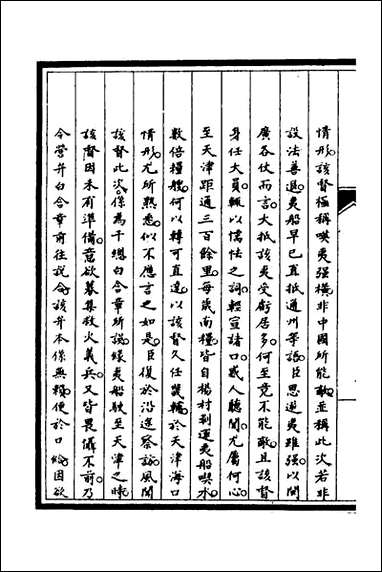 情形該督極稱嘆夷強橫非中國所能敵並稱此次若非
設法善退夷船早已直抵通州等語臣思逆夷雖強以閩
廣各仗而言大抵該夷受虧居多何至竟不能敵且該督
身任大員輒以懦怯之詞輕宣諸口惑人聽聞尤屬何心
至天津距通三百餘里每歲南糧皆自楊村剝運夷船喫水
數倍糧艘何以轉可直達以該督久任畿輔於天津海口
情形尤所熟悉似不應言之如是臣復於沿途察訪風聞
該督此次係為千總白含章所誤緣夷船駛至天津之時
該督因未有準備意欲募集敢火義兵又皆畏懾不前乃
令營弁白含章前往說合該弁本係無賴便於口給因欲